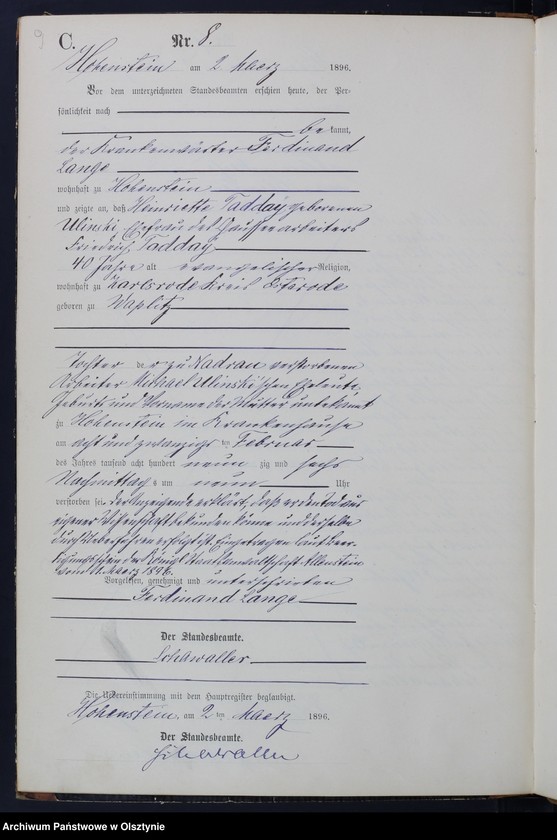 9
C.
Nr. 8.
Hohenstein am 2 Maerz 1896.
Vor dem unterzeichneten Standesbeamten erschien heute, der Per-
sönlichkeit nach
be kannt,
der Krankenwärter Ferdinand
Lange
wohnhaft zu Hohenstein
und zeigte an, daß Henriette Tadday geborenen
Ulinski, Ehefrau des Chausseearbeiters
Friedrich Tadday
40 Jahre alt evangelischer Religion,
wohnhaft zu Karlsrode Kreis Osterode
geboren zu Waplitz
Tochter der zu Nadrau verstorbenen
Arbeiter Michael Ulinski'schen Eheleute.
Geburts und Vorname der Mutter unbekannt
zu Hohenstein im Krankenhause
am acht und zwanzigs ten Februar
des Jahres tausend acht hundert neun zig und sechs
Nachmittags um neun Uhr
verstorben sei. Der Anzeigende erklärt, daß er den Tod aus
eigener Wissenschaft bekunden könne und derselbe
durch Ueberfahren erfolgt ist. Eingetragen laut
der Königl Staatsanwaltschaft Allenstein
vom 1. Maerz 1896.
Vorgelesen, genehmigt und unterschrieben
Ferdinand Lange
Der Standesbeamte.
Schawaller
Die Uebereinstimmung mit dem Hauptregister beglaubigt.
Hohenstein, am 2 ten Maerz 1896.
Der Standesbeamte.
Schawaller
Archiwum Państwowe w Olsztynie